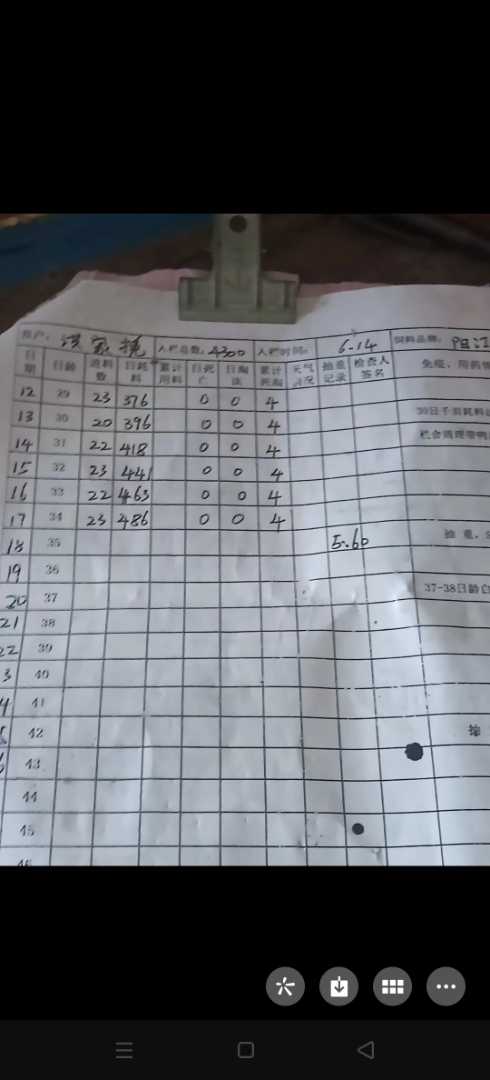 养户: 洪家挠 入栏总数: 4300 入栏时间: 6.14 饲料品牌: 阳江
日期 日龄 进料数 日耗料 累计用料 日死亡 日淘汰 累计死淘 天气情况 抽重记录 检查人签名 免疫、用药情
12 29 23 376 0 0 4
13 30 20 396 0 0 4 30日千羽耗料
14 31 22 418 0 0 4 栏舍周理带鸭
15 32 23 441 0 0 4
16 33 22 463 0 0 4
17 34 23 486 0 0 4
18 35 5.60 抽重,
19 36
20 37 37-38日龄
21 38
22 39
3 40
4 41
42 抽
43
44
45
46